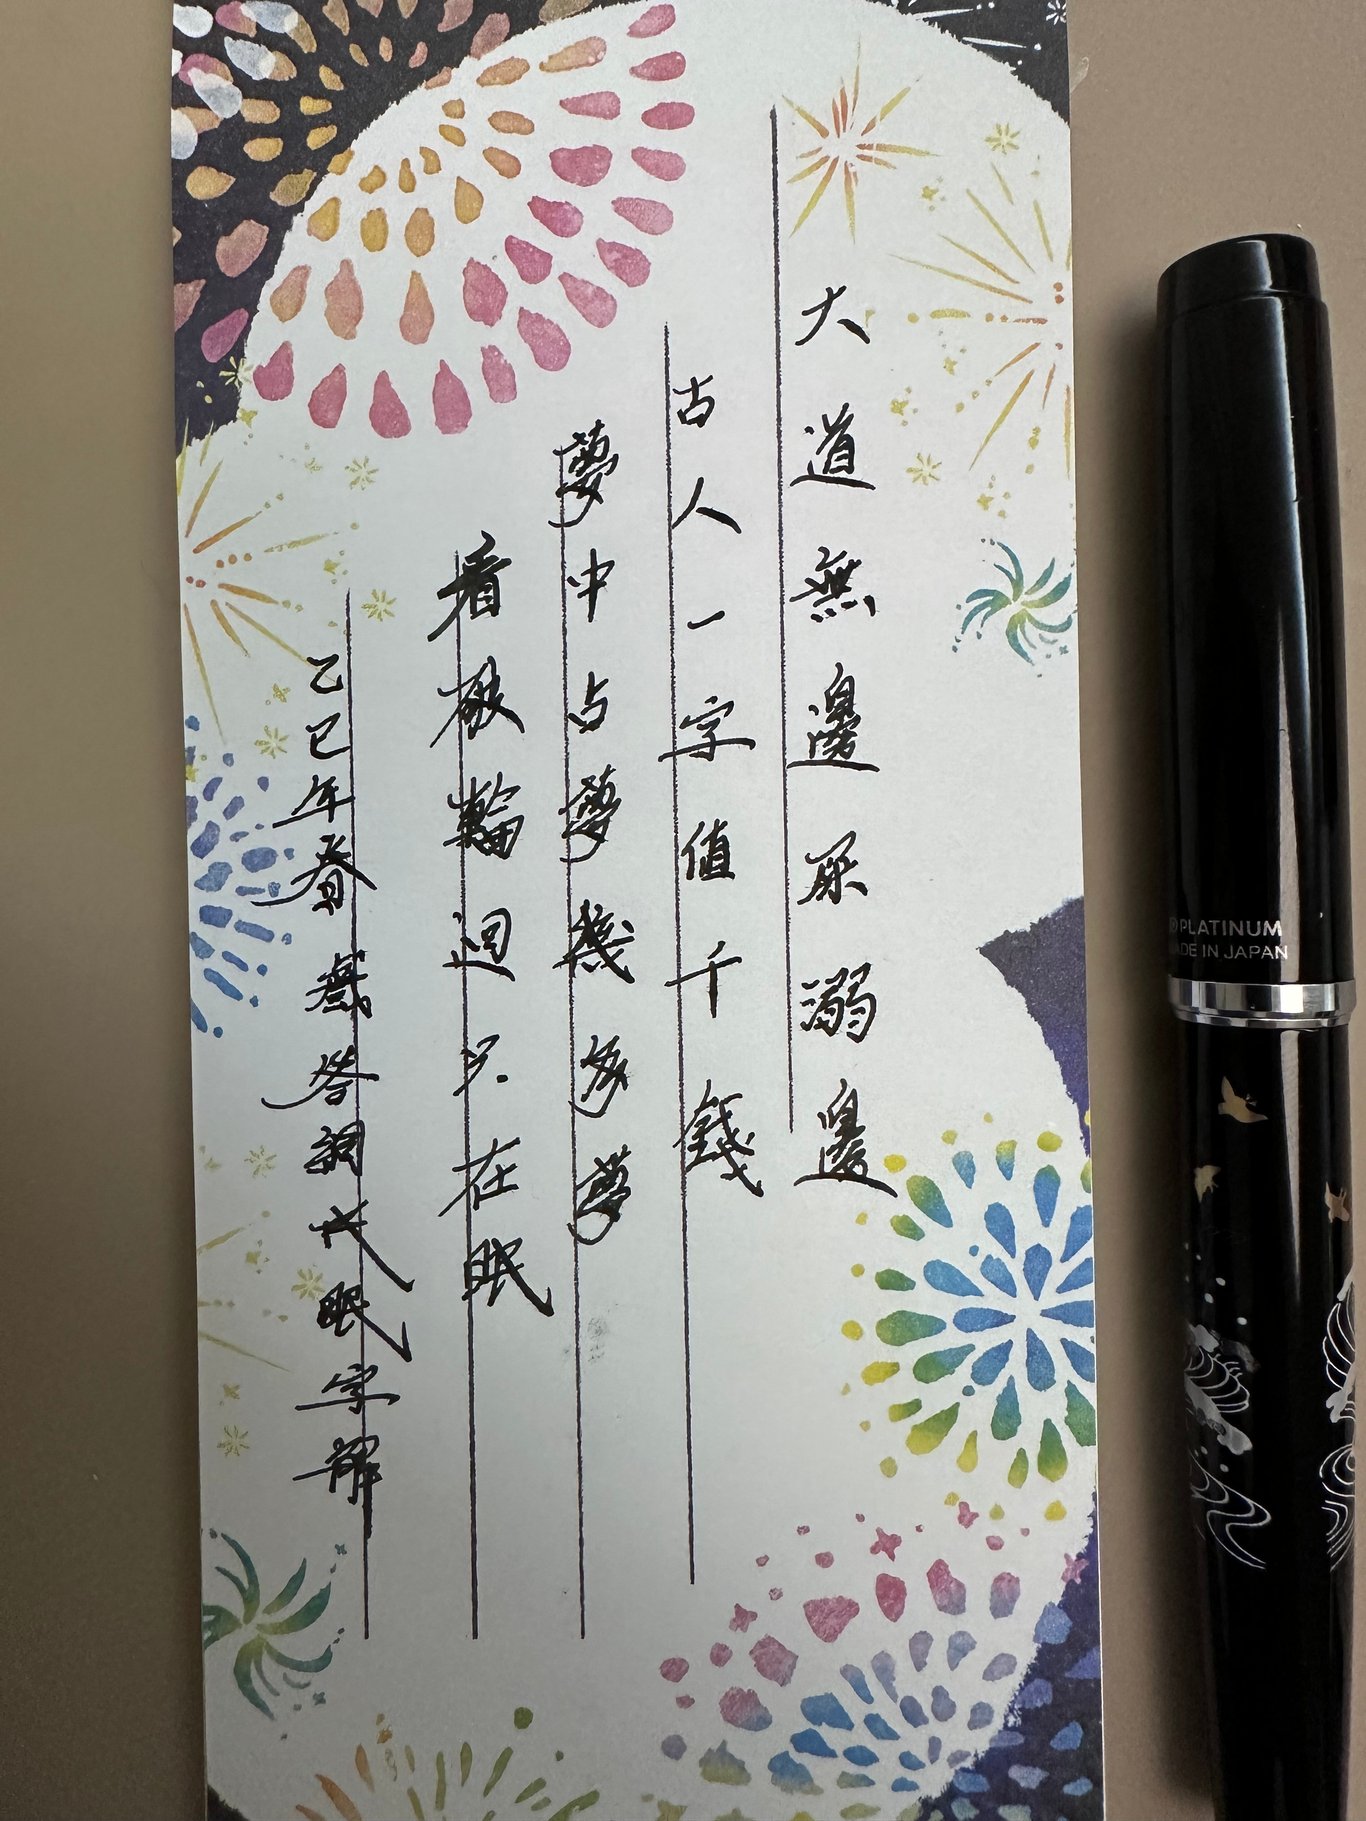 大道無邊尿溺邊
古人一字值千錢
夢中占夢幾多夢
看破輪迴只在眠
乙巳年春 戲答詞长眠字
PLATINUM
ADE IN JAPAN